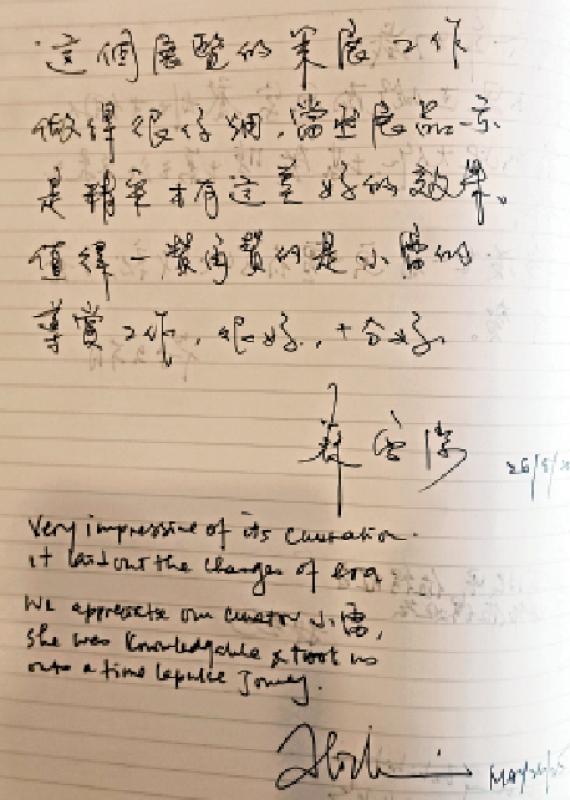 這個展覽的策展工作
做得很仔細,當然展品亦
是精彩才有這麼好的效果。
值得一贊再贊的是小雷的
導賞工作,很好,十分好。
26/5/2
Very impressive of its curation.
it laid out the changes of era
We appreciate our curator 小雷,
she was knowledgable & took us
onto a time lapulse Jouney.